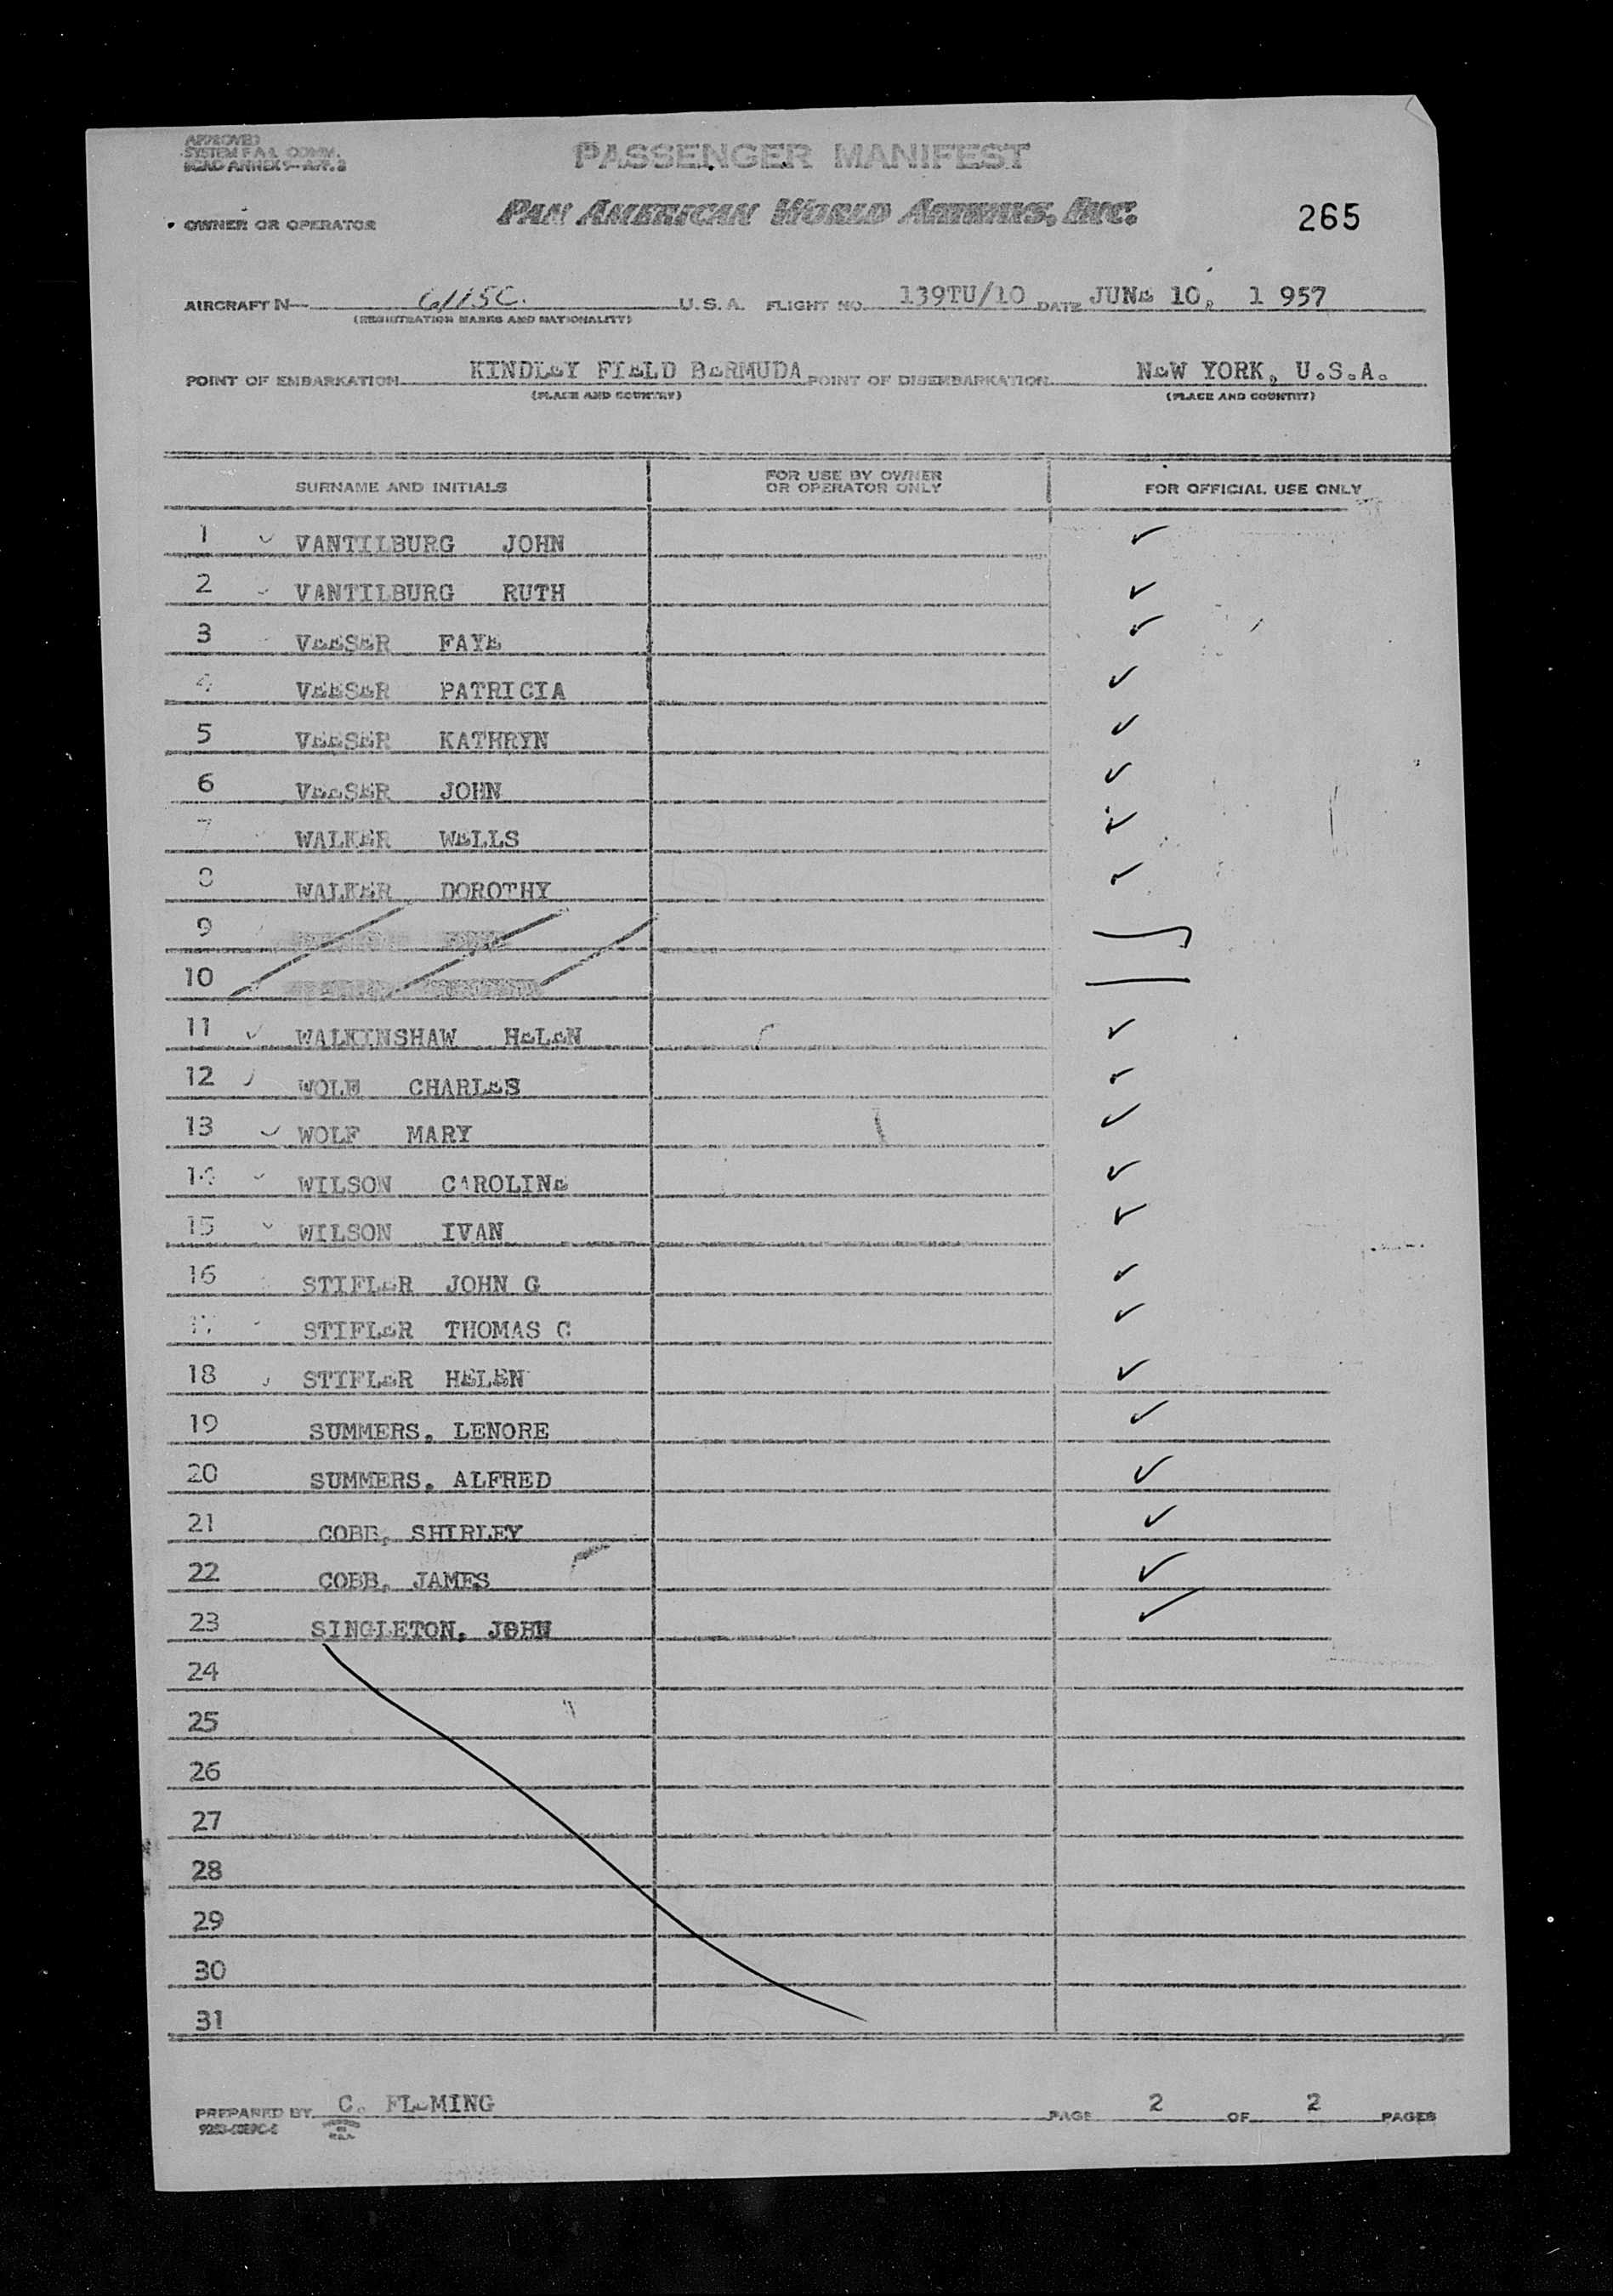 APPROVED
SYSTEM F.A.L. COMM.
ICAO ANNEX 9—APP. 2
PASSENGER MANIFEST
OWNER OR OPERATOR PAN AMERICAN WORLD AIRWAYS, INC. 265
AIRCRAFT N— 6115C. U.S.A. FLIGHT NO. 139TU/10 DATE JUNE 10, 1 957
(REGISTRATION MARKS AND NATIONALITY)
POINT OF EMBARKATION KINDLEY FIELD BERMUDA POINT OF DISEMBARKATION NEW YORK, U.S.A.
(PLACE AND COUNTRY) (PLACE AND COUNTRY)
SURNAME AND INITIALS FOR USE BY OWNER OR OPERATOR ONLY FOR OFFICIAL USE ONLY
1 VANTILBURG JOHN
2 VANTILBURG RUTH
3 VEESER FAYE
4 VEESER PATRICIA
5 VEESER KATHRYN
6 VEESER JOHN
7 WALKER WELLS
8 WALKER DOROTHY
9
10
11 WALKINSHAW HELEN
12 WOLF CHARLES
13 WOLF MARY
14 WILSON CAROLINE
15 WILSON IVAN
16 STIFLER JOHN G
17 STIFLER THOMAS C
18 STIFLER HELEN
19 SUMMERS, LENORE
20 SUMMERS, ALFRED
21 COBB, SHIRLEY
22 COBB, JAMES
23 SINGLETON, JOHN
24
25
26
27
28
29
30
31
PREPARED BY C. FLEMING PAGE 2 OF 2 PAGES